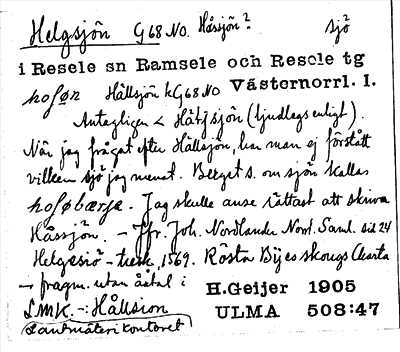 Helgsjön G68 NO. Håsjön? sjö
i Resele sn Ramsele och Resele tg
hosøn Hållsjön kG68NO Västernorrl. l.
Antagligen < Håtjsjön (ljudlagsenligt).
När jag frågat efter Hållsjön, har man ej förstått
vilken sjö jag menat. Berget s. om sjön kallas
hosøbærje. Jag skulle anse rättast att skriva
Håssjön. – Jfr. Joh. Nordlander Norrl. Saml. sid 24
Helgesiö – 1569. Rösta Bijes skougs Charta
– fragm. utan årtal i H.Geijer 1905
LMK. – Hållsion ULMA 508:47
Landtmäterikontoret